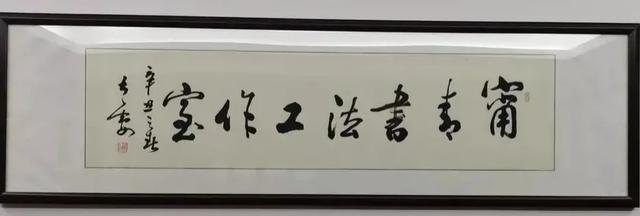 甯青書法工作室
辛丑之秋